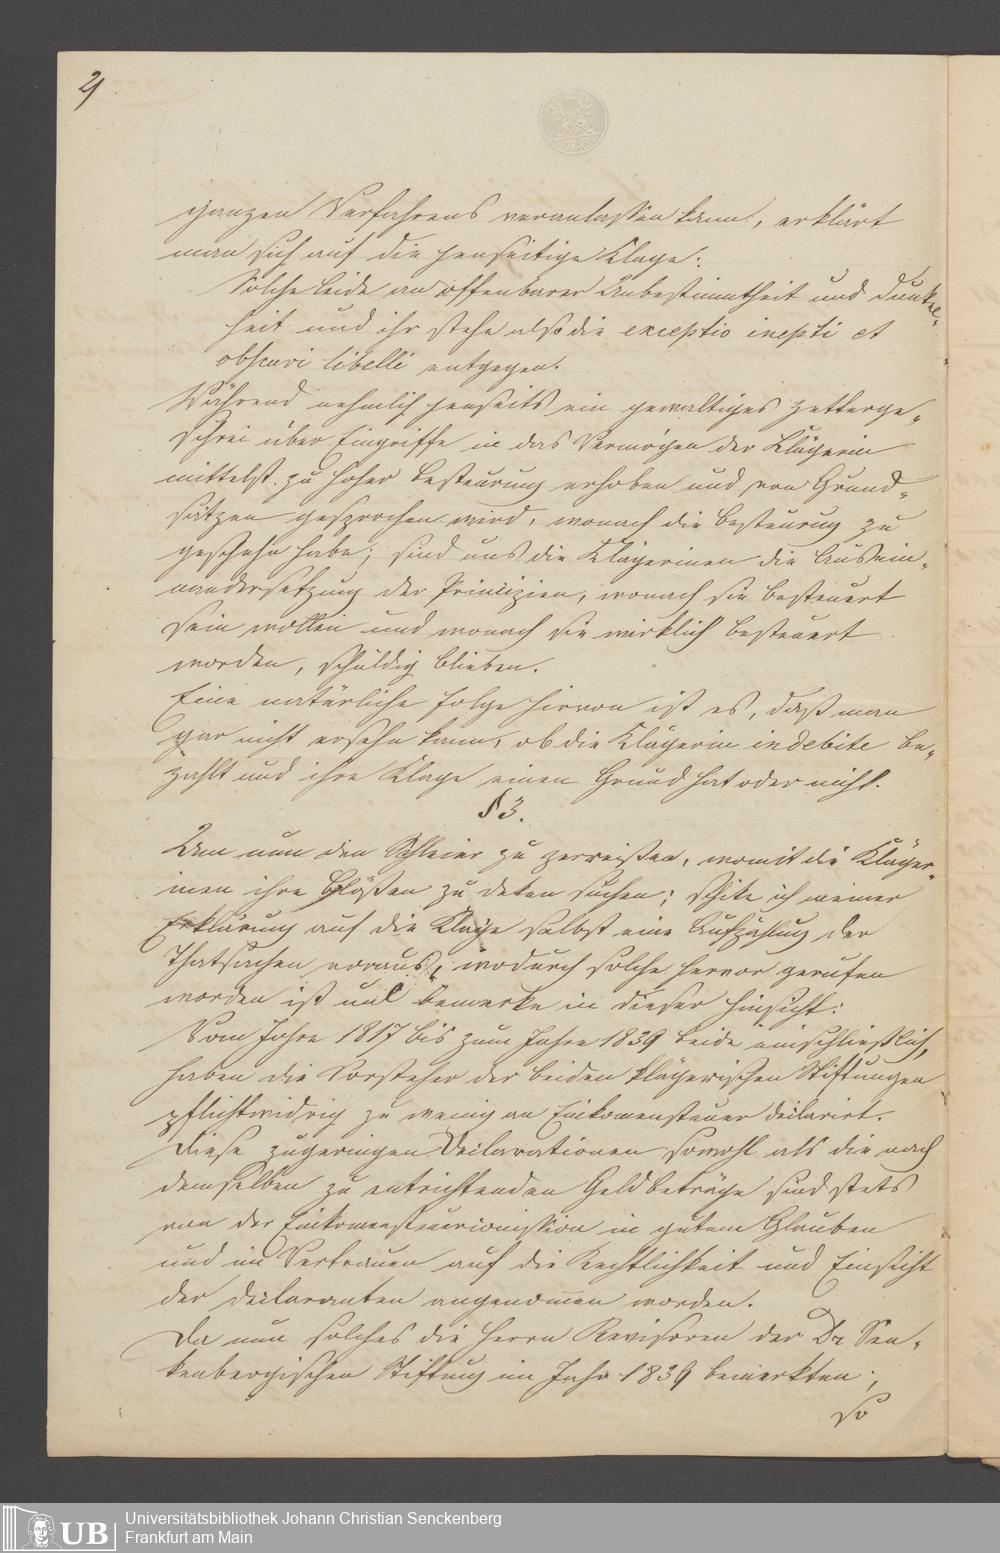 2/
ganzen Verfahrens veranlassen kann, erklärt
man sich auf die jenseitige Klage:
Solche leide an offenbarer Unbestimmtheit und Dunkel-
heit und ihr stehe also die exceptio inepti et
obscuri libelli entgegen.
Während nehmlich jenseits ein gewaltiges Zetterge-
schrei über Eingriffe in das Vermögen der Klägerin
mittelst zu hoher Besteurung erhoben und von Grund-
sätzen gesprochen wird, wonach die Besteurug zu
geschehn habe; sind uns die Klägerinen die Ausein-
nandersetzung der Prinzipien, wonach sie besteuert
sein wollen und wonach sie wirklich besteuert
worden, schuldig blieben.
Eine natürliche Folge hievon ist es, daß man
gar nicht ersehn kann, ob die Klägerin indebite be-
zahlt und ihre Klage einen Grund hat oder nicht.
§ 3.
Um nun den Schleier zu zerreißen, womit die Kläger-
inen ihre Blößen zu deken suchen; schike ich meiner
Erklärung auf die Klage selbst eine Aufzählug der
Thatsachen voraus, wodurch solche hervor gerufen
worden ist und bemerke in dieser Hinsicht:
Vom Jahre 1817 bis zum Jahre 1839 beide einschließlich,
haben die Vorsteher der beiden klägerischen Stiftungen
pflichtwidrig zu wenig an Einkomensteuer declarirt.
Diese zugeringen Declarationen sowohl als die nach
demselben zu entrichtenden Geldbeträge sind stets
von der Einkomensteuercomission in gutem Glauben
und im Vertrauen auf die Rechtlichkeit und Einsicht
der Declaranten angenomen worden.
Da nun solches die Herrn Revisoren der Dr Sen-
kenbergischen Stiftung im Jahr 1839 bemerkten;
so
UB
Universitätsbibliothek Johann Christian Senckenberg
Frankfurt am Main